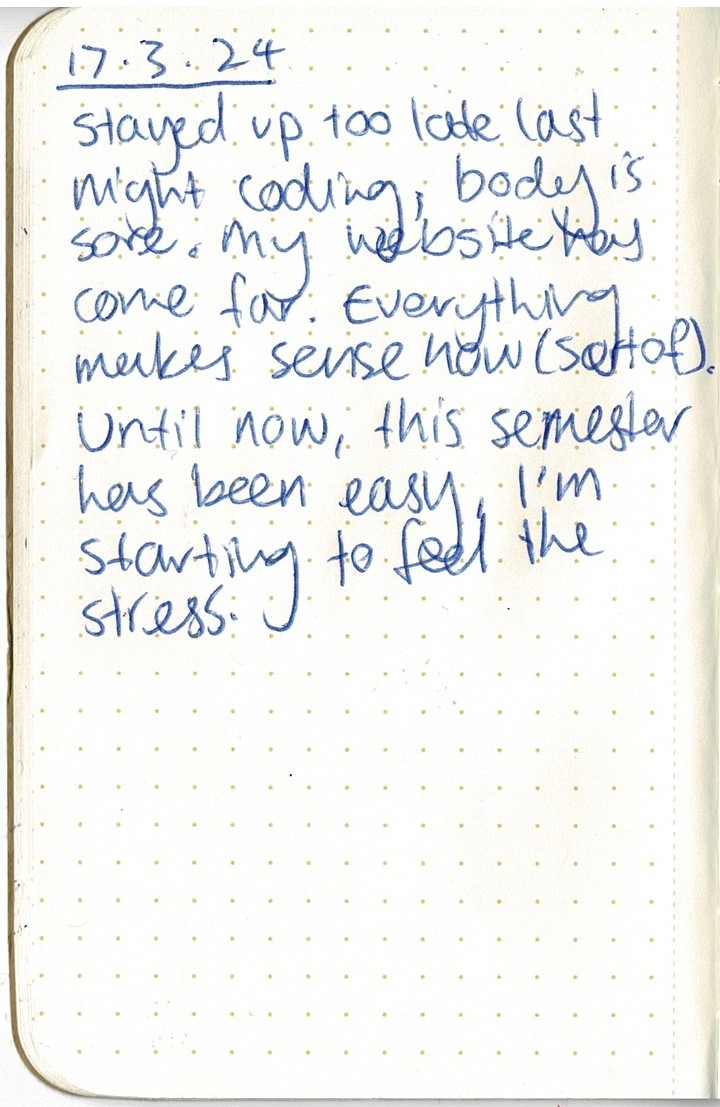 17.3.24
stayed up too late last
night coding, body is
sore. my website has
come far. Everything
makes sense now (sort of).
Until now, this semester
has been easy, I'm
starting to feel the
stress.